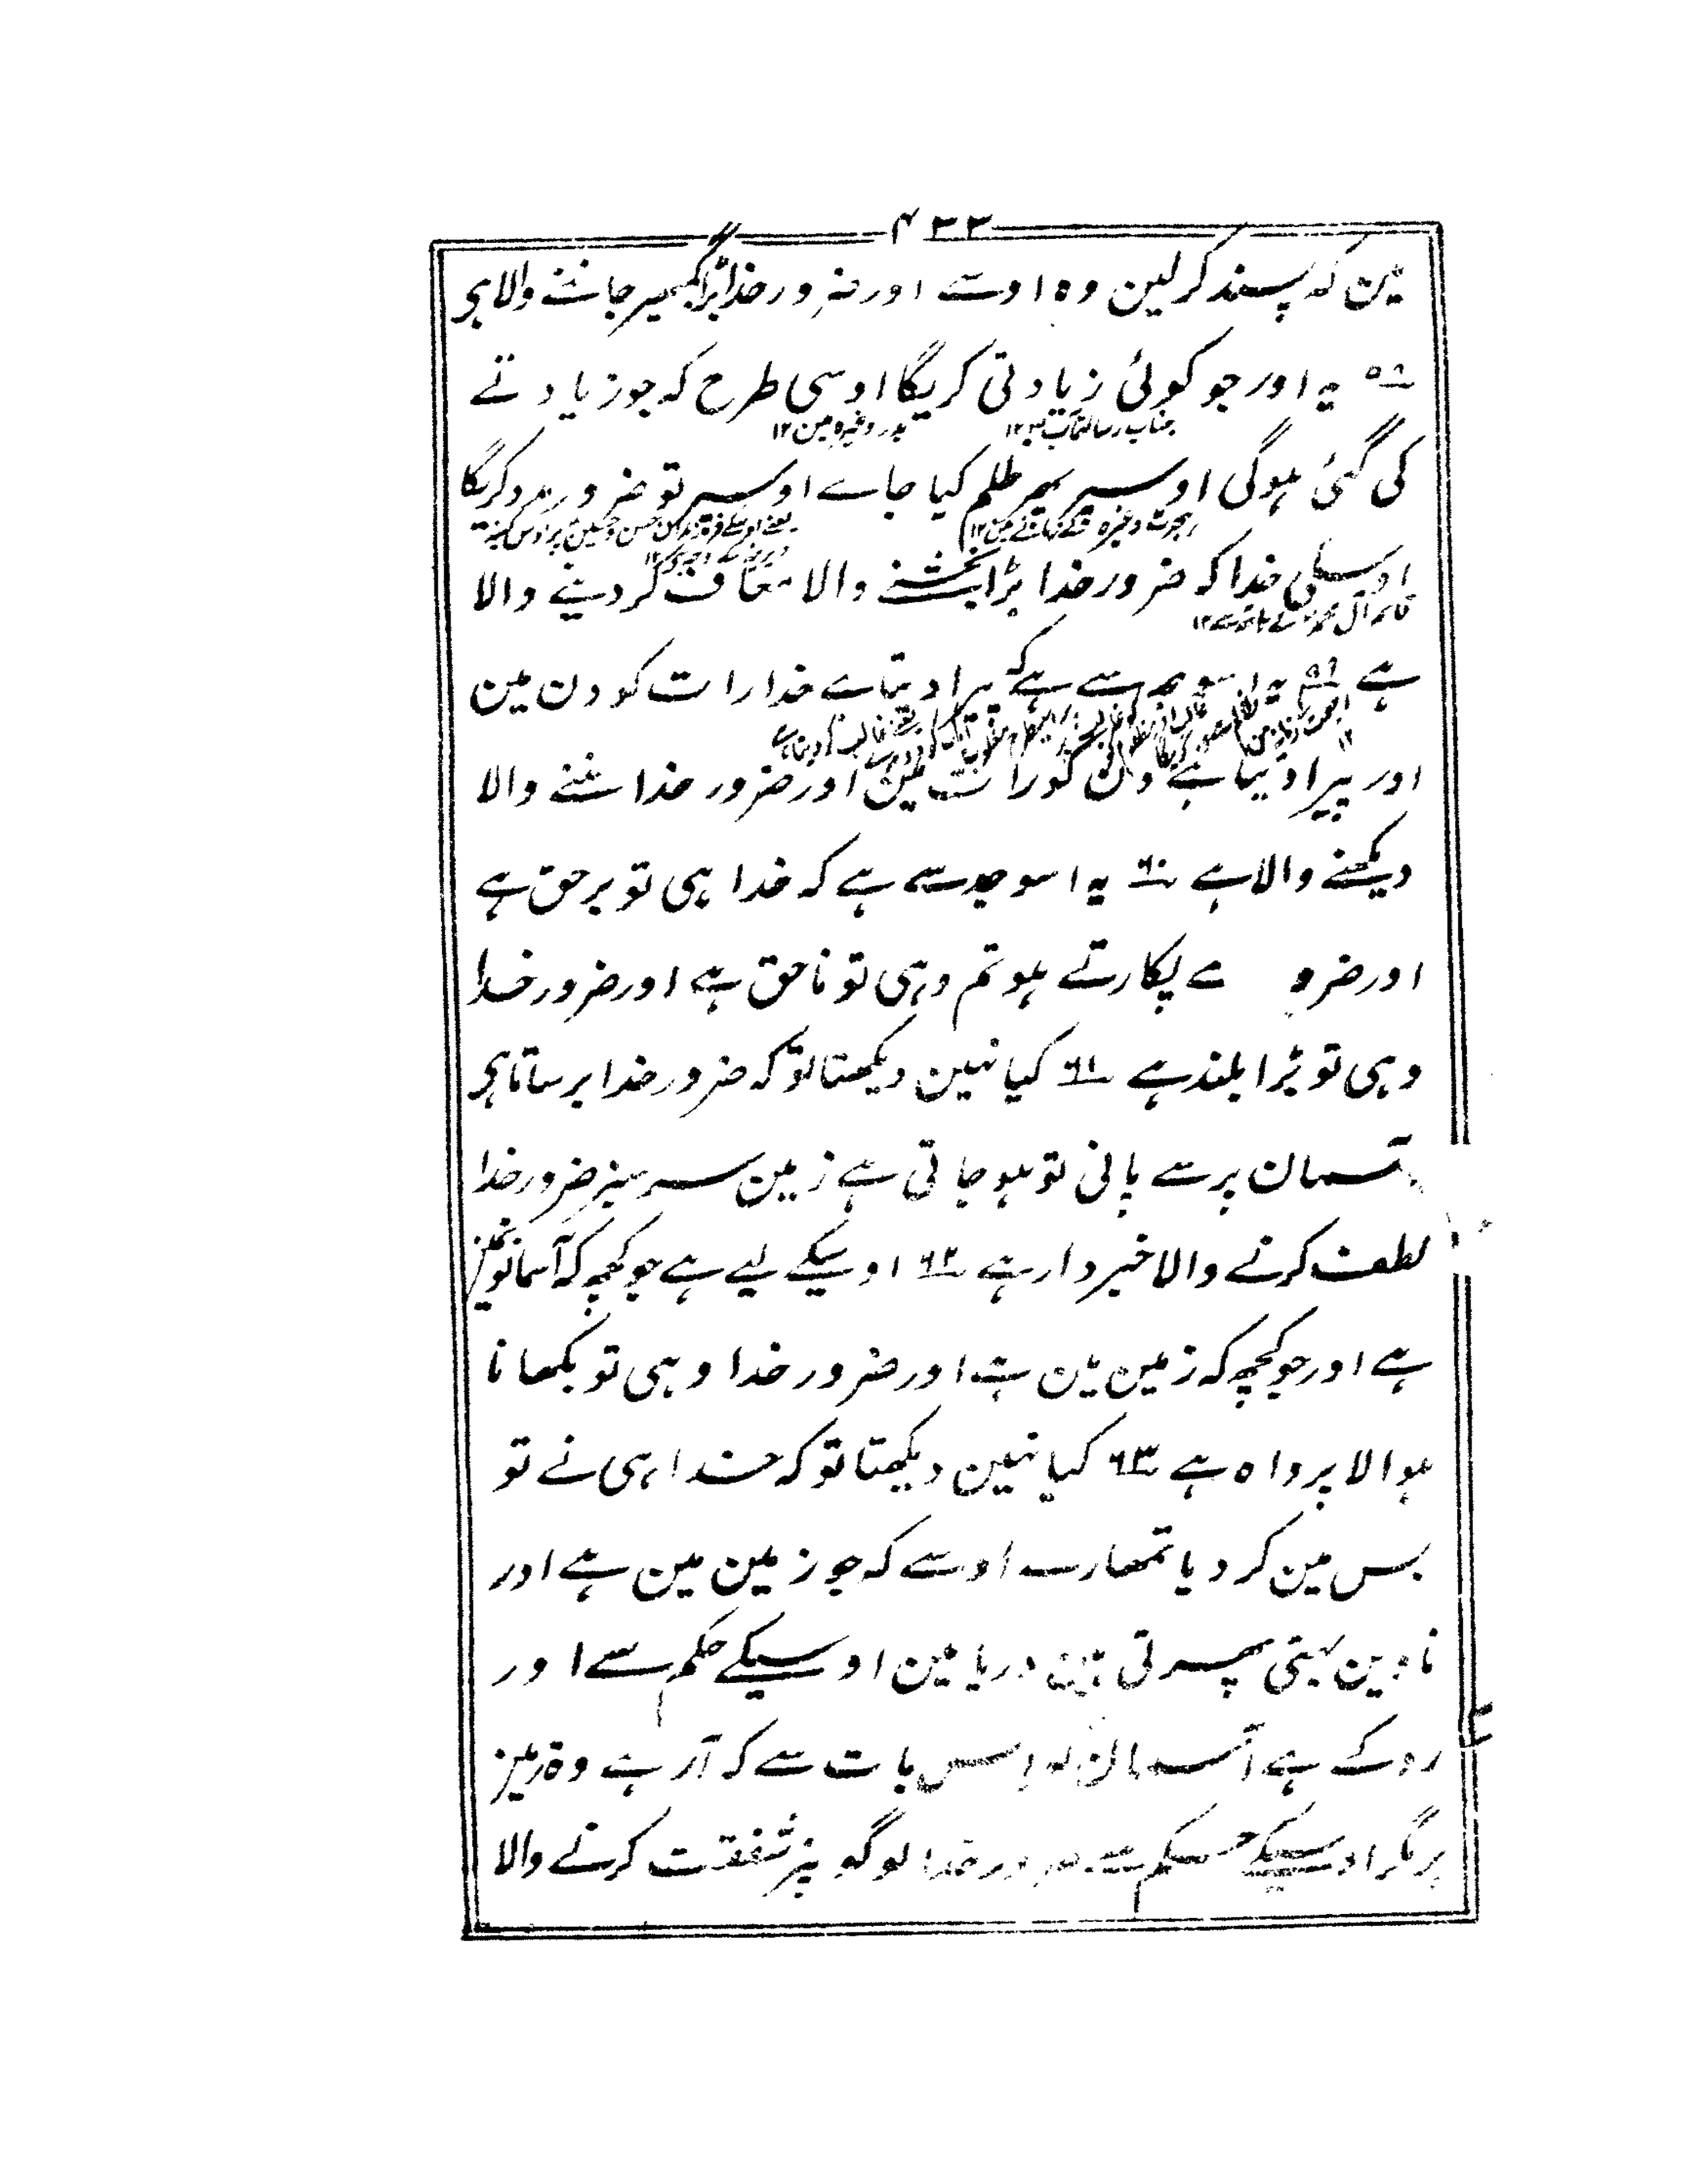 ۴۳۳
مین کہ پسند کرلین وہ اوسے اور ضرور خدا بڑا گمبھیر جاننے والا ہی
۵۹ یہ اور جو کوئی زیادتی کریگا اوسی طرح کہ جو زیادتے
جناب رسالتمآب ۱۲ بدر وغیرہ مین ۱۲
کی گئی ہوگی اوسپر پھر ظلم کیا جاے اوسپر تو ضرور مدد کریگا
ہجرت وغیرہ مین ۱۲
اوسکی خدا کہ ضرور خدا بڑا بخشنے والا معاف کر دینے والا
قائم آل محمد ۱۲
ہے یہ اسوجہ سے ہے کہ پیرا دیتا ہے خدا رات کو دن مین
اور پیرا دیتا ہے دن کو رات مین اور ضرور خدا سننے والا
دیکھنے والا ہے ۶۰ یہ اسوجہ سے ہے کہ خدا ہی تو برحق ہے
اور ضرو ے پکارتے ہو تم وہی تو ناحق ہے اور ضرور خدا
وہی تو بڑا بلند ہے ۶۱ کیا نہین دیکھتا تو کہ ضرور خدا برساتا ہی
آسمان پر سے پانی تو ہو جاتی ہے زمین سرسبز ضرور خدا
لطف کرنے والا خبردار ہے ۶۲ اوسیکے لیے ہے جو کچھ کہ آسمانونمین
ہے اور جو کچھ کہ زمین مین ہے اور ضرور خدا وہی تو بکھانا
ہوا لا پرواہ ہے ۶۳ کیا نہین دیکھتا تو کہ خدا ہی نے تو
بس مین کر دیا تمھارے اوسے کہ جو زمین مین ہے اور
ناوین بہتی پھرتی ہین دریا مین اوسیکے حکم سے اور
روکے ہے آسمان کو اس بات سے کہ آ رہے وہ زمین
پر مگر اوسیکے حکم سے ضرور خدا لوگونپر شفقت کرنے والا